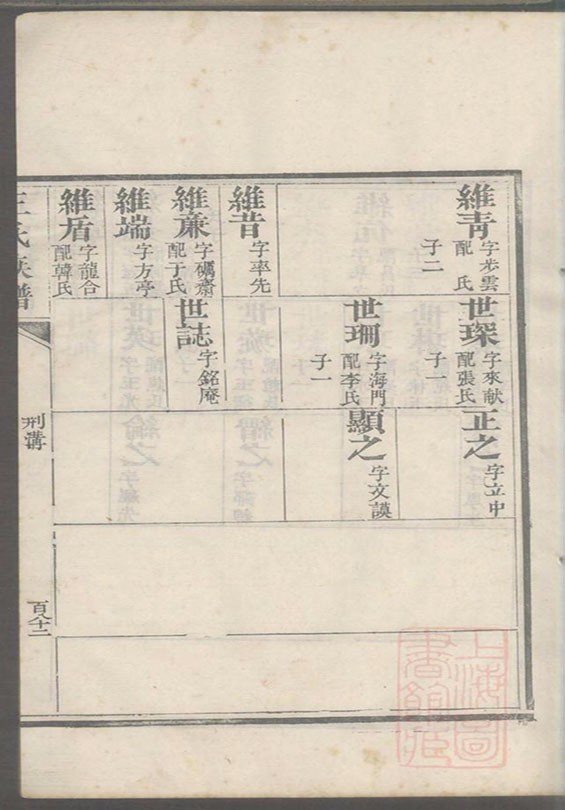 維青
字步雲
配 氏
子二
世琛
字來献
配張氏
子
正之
字立中
世珊
字海門
配李氏
子一
顯之
字文謨
維昔
字率先
維亷
字礪齋
配于氏
世誌
字銘庵
維端
字方亭
維盾
字龍合
配韓氏
王氏族譜
刑溝
百八十二
上海圖書館藏